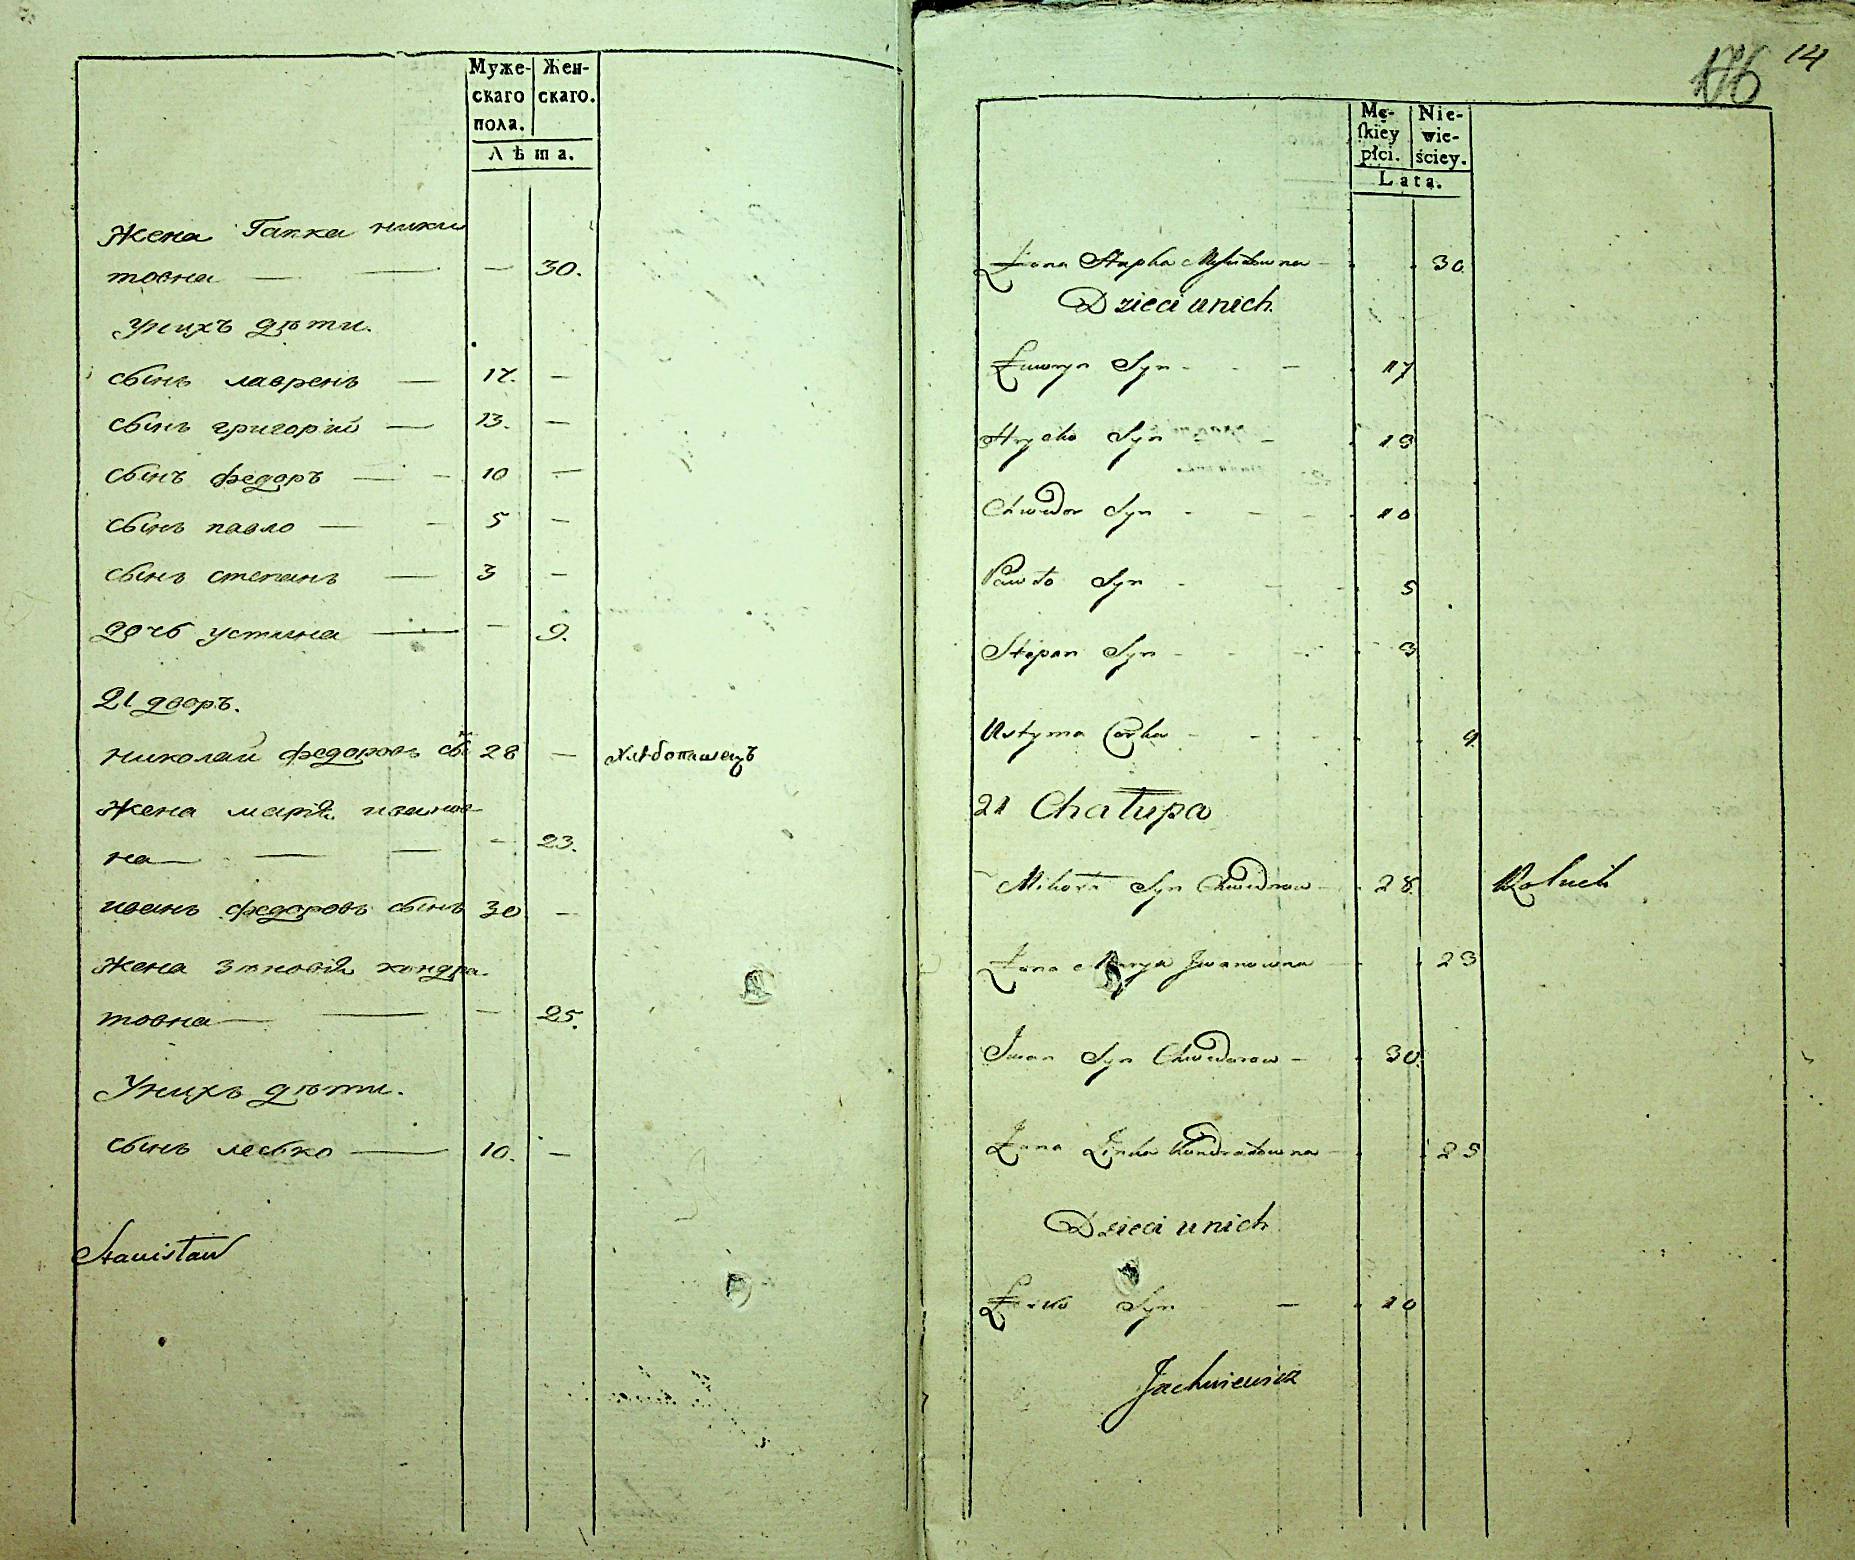 Муже-
скаго
пола.
Жен-
скаго.
Лѣта.
жена Гапка ники
товна — — — 30.
унихъ дѣти.
сынъ лавренъ — 17. —
сынъ григорій — 13. —
сынъ федоръ — - 10 —
сынъ павло — - 5 —
сынъ степанъ — 3 —
дочь устина — — 9.
21 дворъ.
николай федоровъ сы 28 — хлѣбопашецъ
жена марія ивановъ-
на — — — - 23.
иванъ федоровъ сынъ 30 —
жена зѣновія кондра-
товна — — — 25.
Унихъ дѣти.
сынъ лесько — 10. —
Stanisław
176 14
Mę-
skiey
płci.
Nie-
wie-
ściey.
Lata.
Żona Hapka 30
Dzieci unich.
Ławryn Syn - - — 17
Hryćko Syn - — 13
Chwedor Syn - — - 10
Pawło Syn - — - 5
Stepan Syn - - - 3
Ustyma Corka - - - 9
21 Chałupa
Mikołá Syn Chwedorow 28 Rolnik
Żona Marya Iwanowna 23
Iwan Syn Chwedorow — 30
Żona Zinka Kondratowna — 25
Dzieci unich
Leśko Syn — 10
Jachniewicz